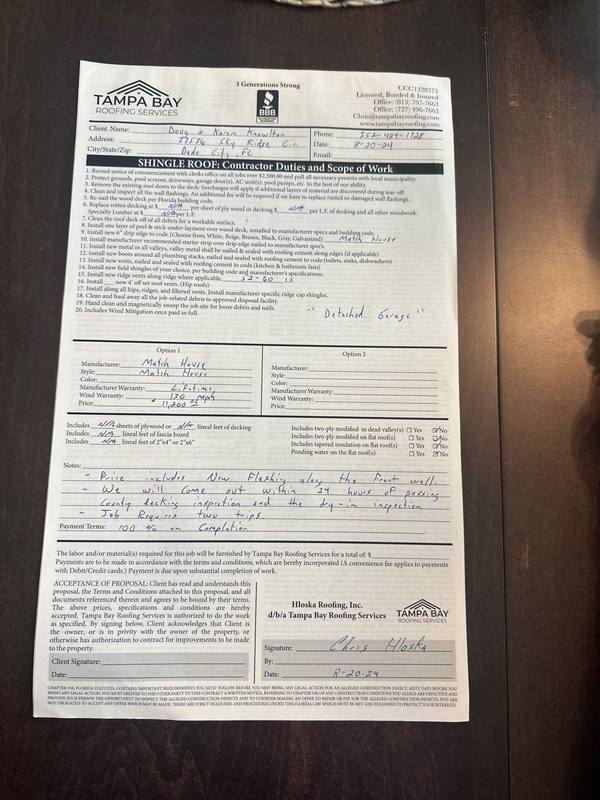 TAMPA BAY
ROOFING SERVICES
3 Generations Strong
BBB
CCC1328373
Licensed, Bonded & Insured
Office: (813) 797-7663
Office: (727) 496-7663
Chris@tampabayroofing.com
www.tampabayroofing.com
Client Name: Doug & Karen Knowlton
Phone: 352-424-1728
Address: Sky Ridge Cir
Date: 8-20-24
City/State/Zip: Dade City, FL
Email:
SHINGLE ROOF: Contractor Duties and Scope of Work
1. Record notice of commencement with clerks office on all jobs over $2,500.00 and pull all necessary permits with local municipality.
2. Protect grounds, pool screens, driveways, garage door(s), AC unit(s), pool pumps, etc. to the best of our ability.
3. Remove the existing roof down to the deck: Surcharges will apply if additional layers of material are discovered during tear-off.
4. Clean and inspect all the wall flashings. An additional fee will be required if we have to replace rusted or damaged wall flashings.
5. Re-nail the wood deck per Florida building code.
6. Replace rotten decking at $ N/A per sheet of ply wood or decking $ N/A per L.F. of decking and all other woodwork.
Specialty Lumber at $ N/A per L.F.
7. Clean the roof deck off of all debris for a workable surface.
8. Install one layer of peel & stick under-layment over wood deck, installed to manufacturer specs and building code.
9. Install new 6" drip edge to code (Choose from White, Beige, Brown, Black, Gray, Galvanized) Match House
10. Install manufacturer recommended starter strip over drip edge nailed to manufacturer specs.
11. Install new metal in all valleys, valley metal shall be nailed & sealed with roofing cement along edges (if applicable)
12. Install new boots around all plumbing stacks, nailed and sealed with roofing cement to code.(toilets, sinks, dishwashers)
13. Install new vents, nailed and sealed with roofing cement to code.(kitchen & bathroom fans)
14. Install new field shingles of your choice, per building code and manufacturer's specifications.
15. Install new ridge vents along ridge where applicable. 52-60 L.F.
16. Install ___ new 4' off set roof vents. (Hip roofs)
17. Install along all hips, ridges, and filtered vents. Install manufacturer specific ridge cap shingles.
18. Clean and haul away all the job-related debris to approved disposal facility.
19. Hand clean and magnetically sweep the job site for loose debris and nails.
20. Includes Wind Mitigation once paid in full.
"Detached Garage"
Option 1
Manufacturer: Match House
Style: Match House
Color:
Manufacturer Warranty: Lifetime
Wind Warranty: 130 mph
Price: $ 11,200.00
Option 2
Manufacturer:
Style:
Color:
Manufacturer Warranty:
Wind Warranty:
Price:
Includes N/A sheets of plywood or N/A lineal feet of decking
Includes N/A lineal feet of fascia board
Includes N/A lineal feet of 2"x4" or 2"x6"
Includes two-ply modified in dead valley(s) ☐ Yes ☑ No
Includes two-ply modified on flat roof(s) ☐ Yes ☑ No
Includes tapered insulation on flat roof(s) ☐ Yes ☑ No
Ponding water on the flat roof(s) ☐ Yes ☑ No
Notes:
- Price includes New Flashing along the Front wall.
- We will come out within 24 hours of passing
County decking inspection and the dry-in inspection
- Job Requires two trips.
Payment Terms: 100 % on Completion
The labor and/or material(s) required for this job will be furnished by Tampa Bay Roofing Services for a total of: $
Payments are to be made in accordance with the terms and conditions, which are hereby incorporated (A convenience fee applies to payments
with Debit/Credit cards.) Payment is due upon substantial completion of work.
ACCEPTANCE OF PROPOSAL: Client has read and understands this
proposal, the Terms and Conditions attached to this proposal, and all
documents referenced therein and agrees to be bound by their terms.
The above prices, specifications and conditions are hereby
accepted. Tampa Bay Roofing Services is authorized to do the work
as specified. By signing below, Client acknowledges that Client is
the owner, or is in privity with the owner of the property, or
otherwise has authorization to contract for improvements to be made
to the property.
Client Signature:
Date:
Hloska Roofing, Inc.
d/b/a Tampa Bay Roofing Services
TAMPA BAY
ROOFING SERVICES
Signature: Chris Hloska
By:
Date: 8-20-24
CHAPTER 558, FLORIDA STATUTES, CONTAINS IMPORTANT REQUIREMENTS YOU MUST FOLLOW BEFORE YOU MAY BRING ANY LEGAL ACTION FOR AN ALLEGED CONSTRUCTION DEFECT. SIXTY DAYS BEFORE YOU
BRING ANY LEGAL ACTION, YOU MUST DELIVER TO THE OTHER PARTY TO THIS CONTRACT A WRITTEN NOTICE, REFERRING TO CHAPTER 558, OF ANY CONSTRUCTION CONDITIONS YOU ALLEGE ARE DEFECTIVE AND
PROVIDE SUCH PERSON THE OPPORTUNITY TO INSPECT THE ALLEGED CONSTRUCTION DEFECTS AND TO CONSIDER MAKING AN OFFER TO REPAIR OR PAY FOR THE ALLEGED CONSTRUCTION DEFECTS. YOU ARE
NOT OBLIGATED TO ACCEPT ANY OFFER WHICH MAY BE MADE. THERE ARE STRICT DEADLINES AND PROCEDURES UNDER THIS FLORIDA LAW WHICH MUST BE MET AND FOLLOWED TO PROTECT YOUR INTERESTS.